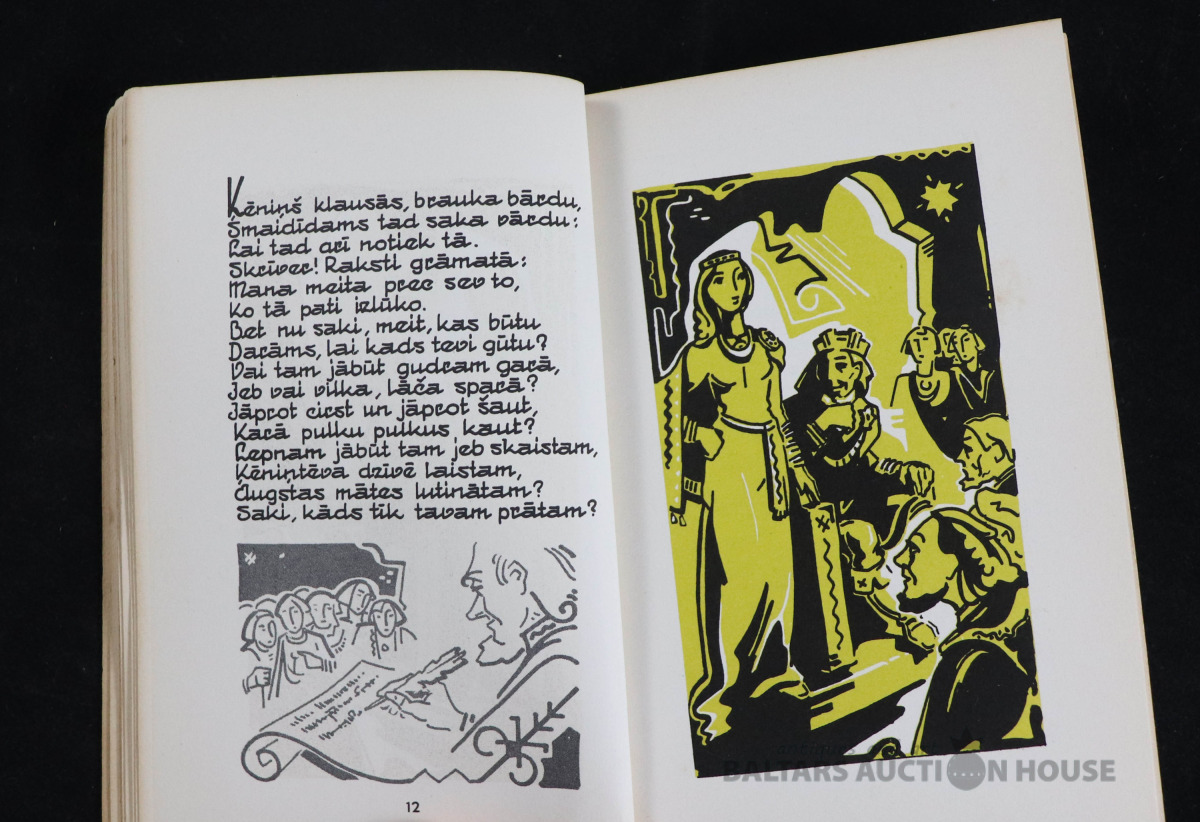 Ķēniņš klausās, brauka bārdu,
Smaidīdams tad saka vārdu:
Lai tad arī notiek tā.
Skrīver! Raksti grāmatā:
Mana meita prec sev to,
Ko tā pati izlūko.
Bet nu saki, meit, kas būtu
Darāms, lai kāds tevi gūtu?
Vai tam jābūt gudram garā,
Jeb vai vilka, lāča sparā?
Jāprot cirst un jāprot šaut,
Karā pulku pulkus kaut?
Lepnam jābūt tam jeb skaistam,
Ķēniņtēva dzīvē laistam,
Augstas mātes lutinātam?
Saki, kāds tīk tavam prātam?
12
BALTARS AUCTION HOUSE